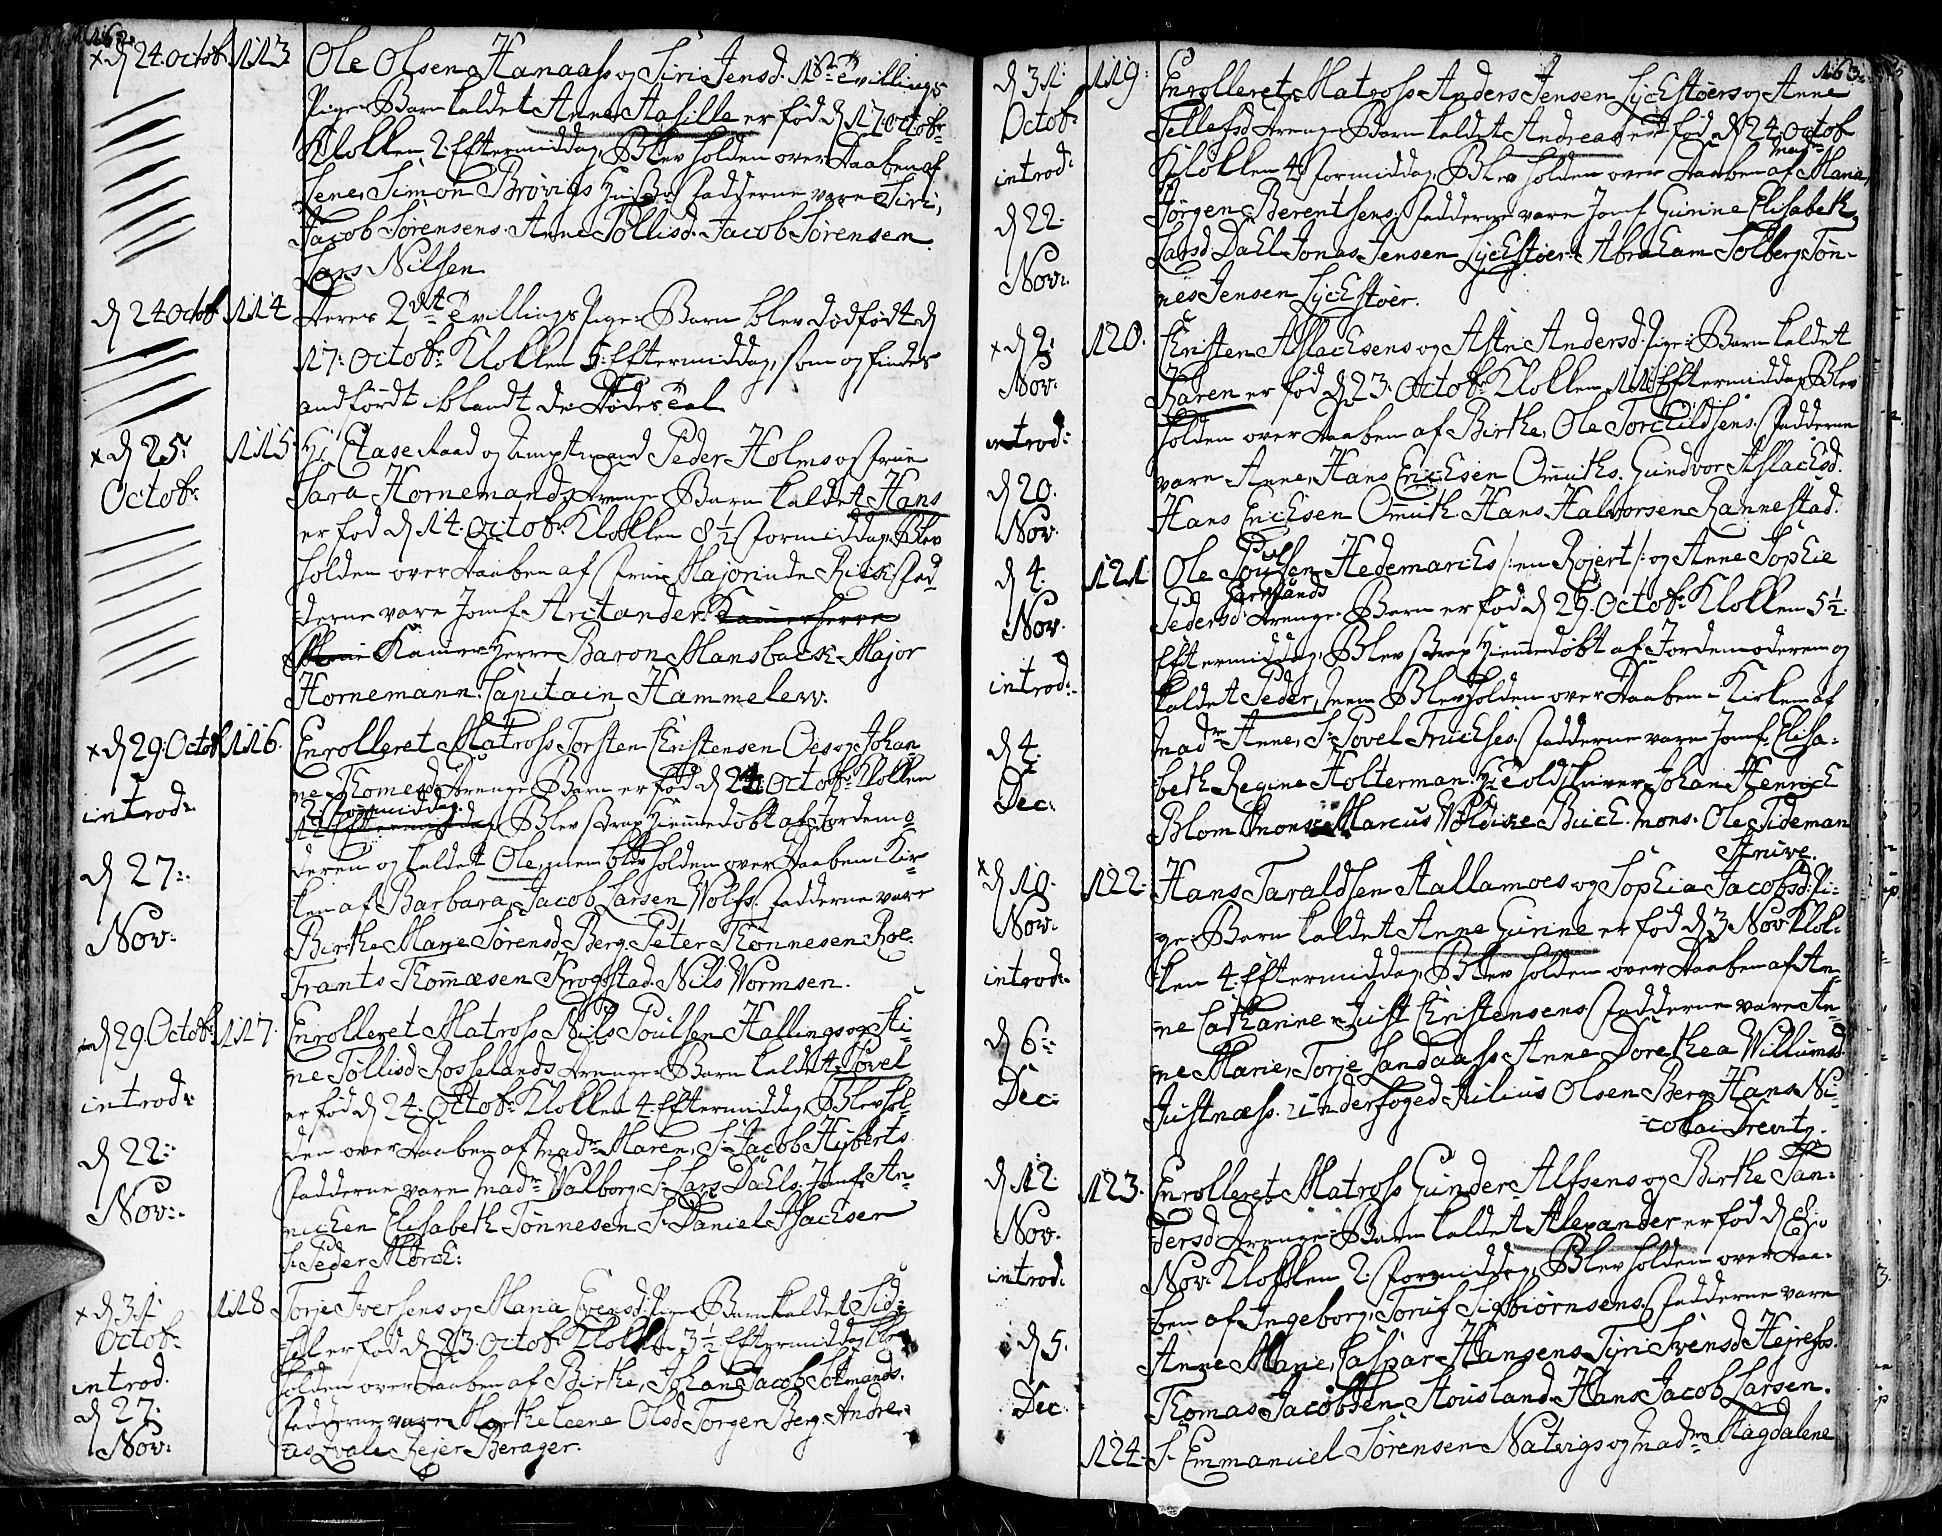 162.
× d 24. Octob. 113. Ole Olsen Hanaass og Siri Jensd. 1ste Tvillings
Pige-Barn kaldet Anne Aasille er fød d 17. Octobr
Klokken 2. Eftermiddag, Blev holden over Daaben af
Lene, Simon Brovigs Hustr. Fadderne vare Siri,
Jacob Sørensens. Anne Tollisd. Jacob Sørensen.
Lars Nilsen
d 24 Octob 114. Deres 2det Tvillings Pige-Barn blev dødfødt d
17. Octobr Klokken 5. Eftermiddag, som og findes
andførdt iblandt de Dødes Tal
× d 25. 115. Hr Etatz Raad og Amptmand Peder Holms og Frue
Octobr. Sara Hornemands Drenge-Barn kaldet Hans
er fød d 14. Octobr Klokken 8½ Formiddag, Blev
holden over Daaben af Frue Majorinde Rick Fad-
derne vare Jomf. Arctander. Kamerherre
Kamer Herre Baron Mansback Major
Hornemann. Capitain Hammelew.
× d 29. Octob 116. Enrolleret Matross Torsten Christensen Oes og Johan
ne Thomesd. Drenge Barn er fød d 24 Octobr Klokken
introd. 2. Formiddag.
Eftermiddag, Blev strax Hiemmedøbt af Jordemo-
d 27. deren og kaldet Ole, men blev holden over Daaben i Kir-
ken af Barbara, Jacob Larsen Wolfss. Fadderne vare
Nov. Birthe Marie Sørensd Berg. Peter Thonnesen Roe.
Frants Thommæsen Krogstad. Nils Wormsen.
d 29. Octobr 117. Enrolleret Matross Nils Poulsen Hallings og Sti-
ne Tollisd Rosselands Drenge-Barn kaldet Povel
introd. er fød d 24. Octobr Klokken 4. Eftermiddag, Blev hol-
d 22. den over Daaben af Madr Maren, Sr Jacob Hyberts
Fadderne vare Madr Valborg, Sr Lars Dahls. Jomf. An-
Nov. nichen Elisabeth Tønnesen Sr Daniel Isachsen
Sr Peder Mørch.
× d 31. 118. Torje Iversens og Maria Evensd. Pige-Barn kaldet Sid-
Octob. sel er fød d 23. Octobr Klokken 3½ Eftermiddag, Blev
introd. holden over Daaben af Birthe, Johan Jacob Soemands.
d 27. Fadderne vare Marthe Leene Olsd Jorgen Berg. Andre-
Nov. as Qvale Rejer Berager.
163.
d 31. 119. Enrolleret Matross Anders Jensen Lyckstøers og Anne
Octob. Tellefsd Drenge-Barn kaldet Andreas er fød d 24. Octob
introd. Klokken 4. Formiddag, Blev holden over Daaben af Madr Maria
d 22. Jørgen Berentsens. Fadderne vare Jomf. Gurine Elisabeth
Larsd Dahl Jonas Jensen Lyckstøer. Abraham Solberg Tøn-
Nov. nes Jensen Lyckstøer.
× d 2. 120. Christen Aslachsens og Astri Andersd. Pige-Barn kaldet
Nov. Karen er fød d 23. Octobr Klokken 11. Eftermiddag, Blev
introd. holden over Daaben af Birthe, Ole Torchildsens. Fadderne
d 20. vare Anne, Hans Erichsen Ommuths. Gundvor Aslachsd.
Nov. Hans Erichsen Ommuth. Hans Halvorsen Rannestad.
d 4. 121. Ole Poulsen Hedemarcks /: en Rojert :/ og Anne Sophie
Nov. Pedersd Drenge-Barn er fød d 29. Octobr Klokken 5½
Eftermiddag, Blev strax Hiemmedøbt af Jordemoderen og
introd. kaldet Peder, men Blev holden over Daaben i Kirken af
d 4. Madr Anne, Sr Povel Fuchses. Fadderne vare Jomf. Elisa-
beth Regine Holterman. Hr Toldskriver Johan Henrich
Dec. Blom Mons. Marcus Woldike Buch. Mons. Ole Tideman
Aruve.
× d 10. 122. Hans Taraldsen Hallamoes og Sophia Jacobsd. Pi-
Nov. ge-Barn kaldet Anne Gurine er fød d 3 Nov. Klok-
introd. ken 4. Eftermiddag, Blev holden over Daaben af An-
ne Catharine, Just Christensens Fadderne vare An-
d 6. ne Marie, Torje Landaass. Anne Dorethea Willumsd
Dec. Justnæss. Underfoged Julius Olsen Berg. Hans Ni-
colai Drevitz.
d 12. 123. Enrolleret Matross Gunder Alfsens og Birthe San-
Nov. dersd Drenge-Barn kaldet Alexander er fød d
introd. Nov. Klokken 2. Formiddag, Blev holden over Daa-
ben af Ingeborg, Toruf Sigbiørnsens. Fadderne vare
d 5. Anne Marie, Caspar Hansens. Siri Svensd Hejress.
Dec. Thomas Jacobsen Stousland. Hans Jacob Larsen.
124. Sr Emmanuel Sørensen Natvigs og Madm Magdalene